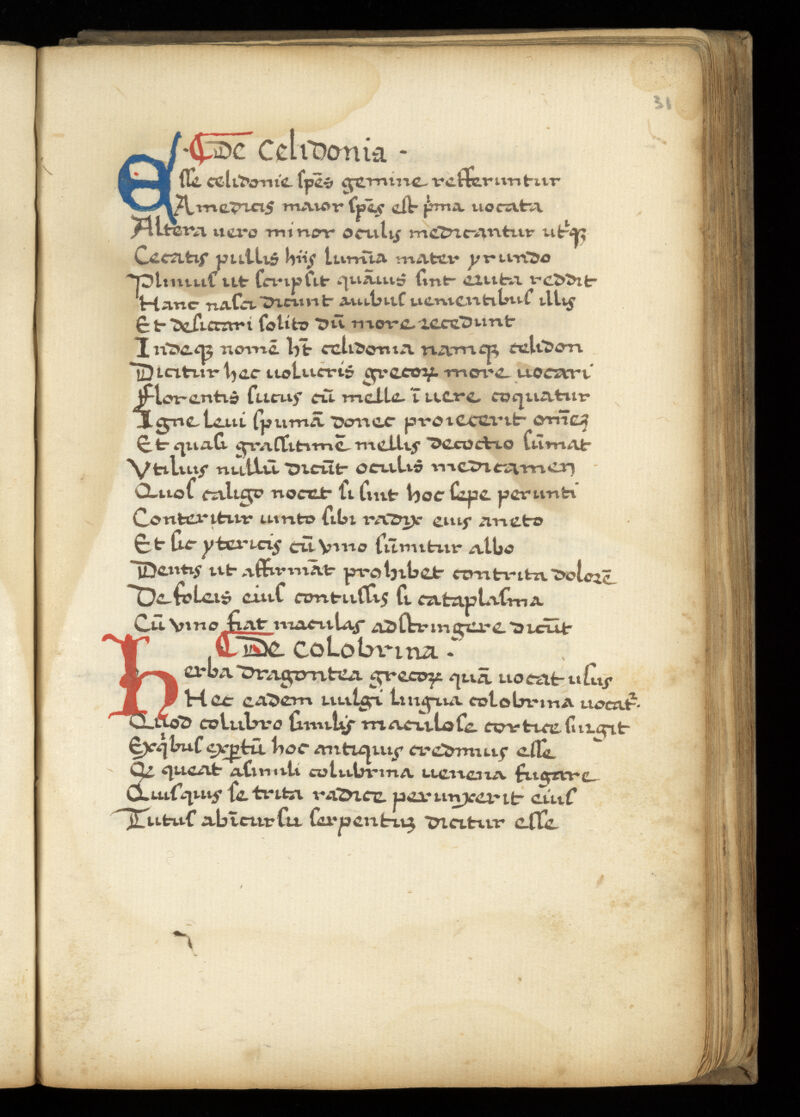 31
De Celidonia
Esse celidonie sp̄es gemine refferuntur
A medicis maior sp̄es est p̓ma uocata
Altera uero minor oculis medicantur ut̓q;
Cecatis pullis hiis lumīa mater yrundo
Plinius ut scripsit quāuis sint eiuta reddit
Hanc nasci dicunt auibus uenientibus illis
Et desiccari solito dū more recedunt
Indeq; nomē ht̄ celidonia namq; celidon
Dicitur hec uolucris grecoꝝ more uocari
Florentis sucus cū melle ī uere coquatur
Igne leui spumā donec proiecerit om̄eȝ
Et quasi grassitimē mellis decoctio sūmat
Vtilius nullū dicūt oculis medicamen
Quos caligo nocet si sint hoc sepe perunti
Conteritur uinto sibi radix eius aneto
Et sic ytericis cū vino sūmitur albo
Dentis ut affirmāt prohibet contrita dolorē
De foleis eius contussis si cataplasma
Cū vino fiat maculas adstringere dicūt
De Colobrina
herba dragontea grecoꝝ quā uocat usus
Hec eadem uulgi lingua colobrina uocat᷑
Quod colubro similis maculose cortice surgit
Exq̓bus exꝑtū hoc antiquis credimus esse
Qꝫ queat asimili colubrina uenena fugare
Quisquis se trita radice perunxerit eius
Tutus abīcursu serpentuȝ dicitur esse